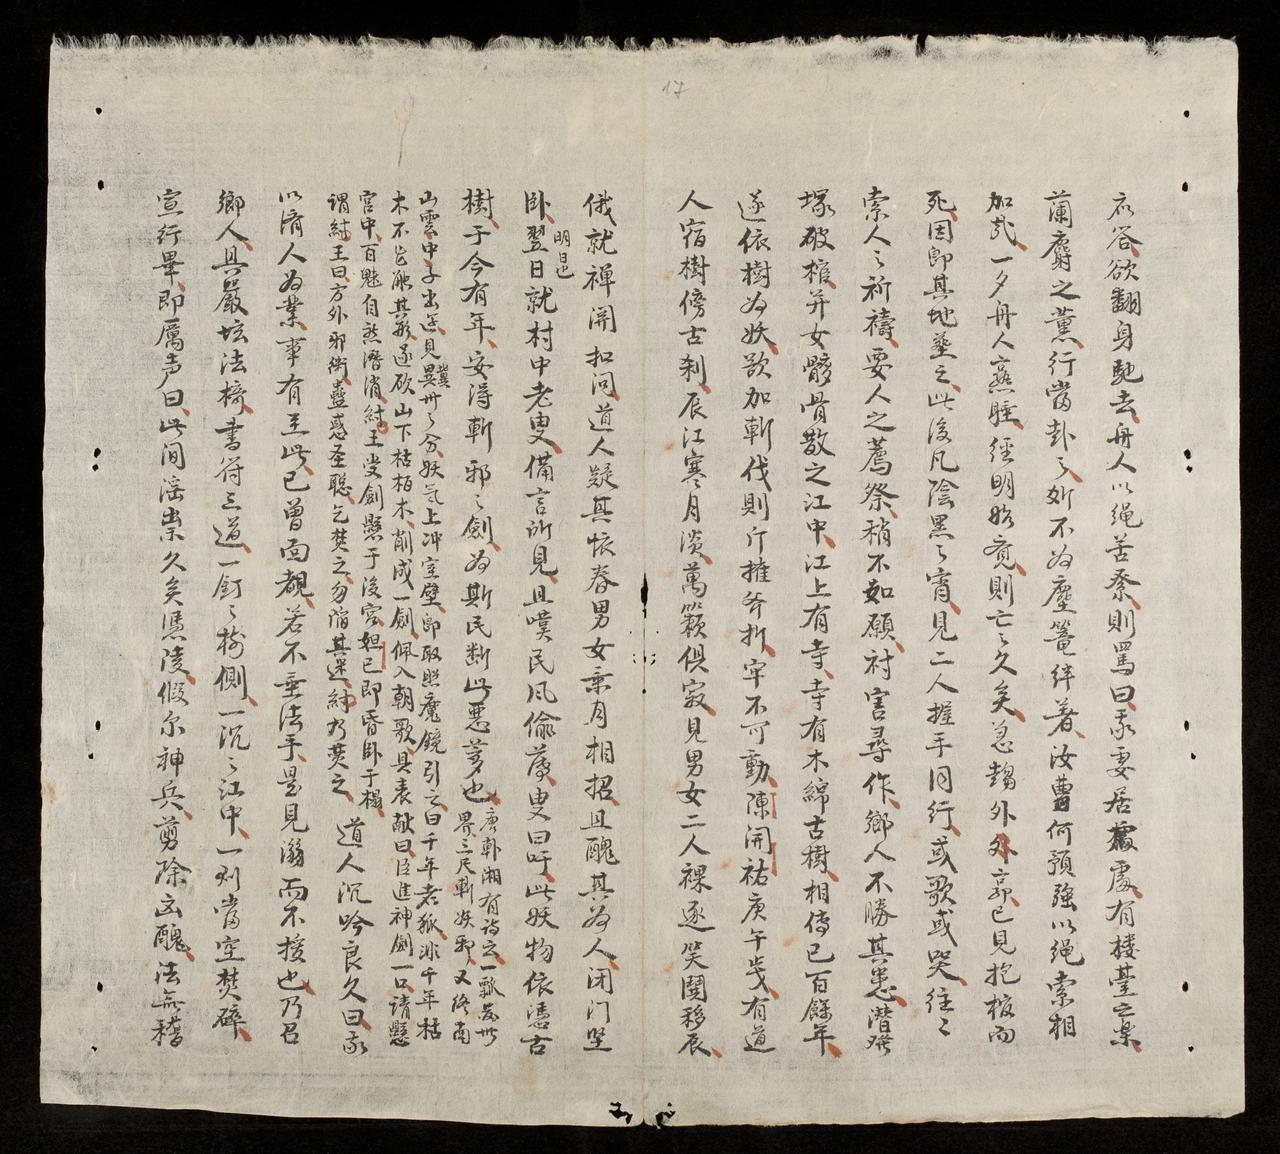 欲翻身馳去舟人以绳苦奈則罵曰我妻居處有樓臺之楽
蘭麝之薰行當卦之所不为塵篭絆着汝曹何預強以绳索相
加哉一夕舟人熟睡徑明始覔則亡之久矣急趨外郭已見抱棺而
死因即其地塟之此後凡陰黑之宵見二人握手同行或歌或哭往々
索人之祈禱要人之薦祭稍不如願村害尋作鄉人不勝其患潜發
塚破棺并女骸骨散之江中江上有寺寺有木綿古樹相傳已百餘年
遂依樹为妖欲加斬伐則斤摧斧折牢不可動陳開祐庚午歲有道
人宿樹傍古刹辰江寒月淡萬籟俱寂見男女二人裸逐笑鬪移辰
俄就禅関扣问道人疑其怀春男女乘月相招且醜其为人闭门坚
卧翌日明日也就村中老叟備言所見且嘆民风偷薄叟曰吁此妖物依憑古
樹于今有年安得斬邪之劍为斯民断此悪夢也唐韓湘有詩云一瓢藏世
界三尺斬妖邪又终南
山雲中子出逰見冀州之分妖氣上冲室壁即取照魔鏡引之曰千年老狐非千年枯
木不足融其形遂砍山下枯栢木削成一劍佩入朝歌具表献曰臣進神劍一口請懸
宮中百魅自然潛消紂王受劍懸于後宮妲己即昏卧于榻
謂紂王曰方外邪術蠱惑圣聪乞焚之勿陷其迷紂乃焚之
道人沉吟良久曰我
以濟人为業事有至此已曾面覩若不垂法手是見溺而不援也乃召
鄉人具嚴坛法榜書符三道一釘之樹側一沉之江中一列當空焚碎
宣行畢即厲声曰此间滛祟久矣憑陵假尔神兵剪除凶醜法無稽